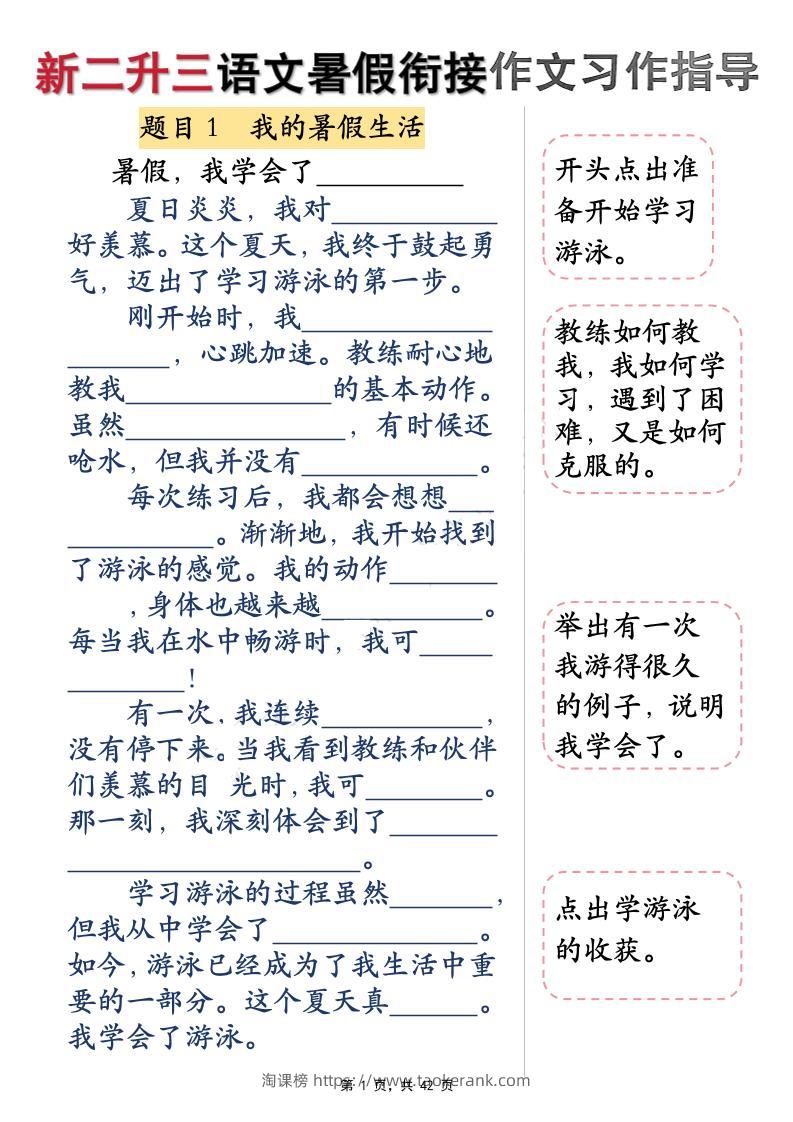 新二升三语文暑假衔接作文习作指导
题目1 我的暑假生活
暑假，我学会了__________
夏日炎炎，我对___________
好羡慕。这个夏天，我终于鼓起勇
气，迈出了学习游泳的第一步。
刚开始时，我_____________
_______，心跳加速。教练耐心地
教我______________的基本动作。
虽然_______________，有时候还
呛水，但我并没有____________。
每次练习后，我都会想想___
__________。渐渐地，我开始找到
了游泳的感觉。我的动作_______
,身体也越来越___________。
每当我在水中畅游时，我可_____
________！
有一次，我连续___________，
没有停下来。当我看到教练和伙伴
们羡慕的目 光时，我可________。
那一刻，我深刻体会到了_______
____________________。
学习游泳的过程虽然_______，
但我从中学会了______________。
如今，游泳已经成为了我生活中重
要的一部分。这个夏天真______。
我学会了游泳。
开头点出准
备开始学习
游泳。
教练如何教
我，我如何学
习，遇到了困
难，又是如何
克服的。
举出有一次
我游得很久
的例子，说明
我学会了。
点出学游泳
的收获。
淘课榜 https://www.taokerank.com
第 1 页，共 42 页